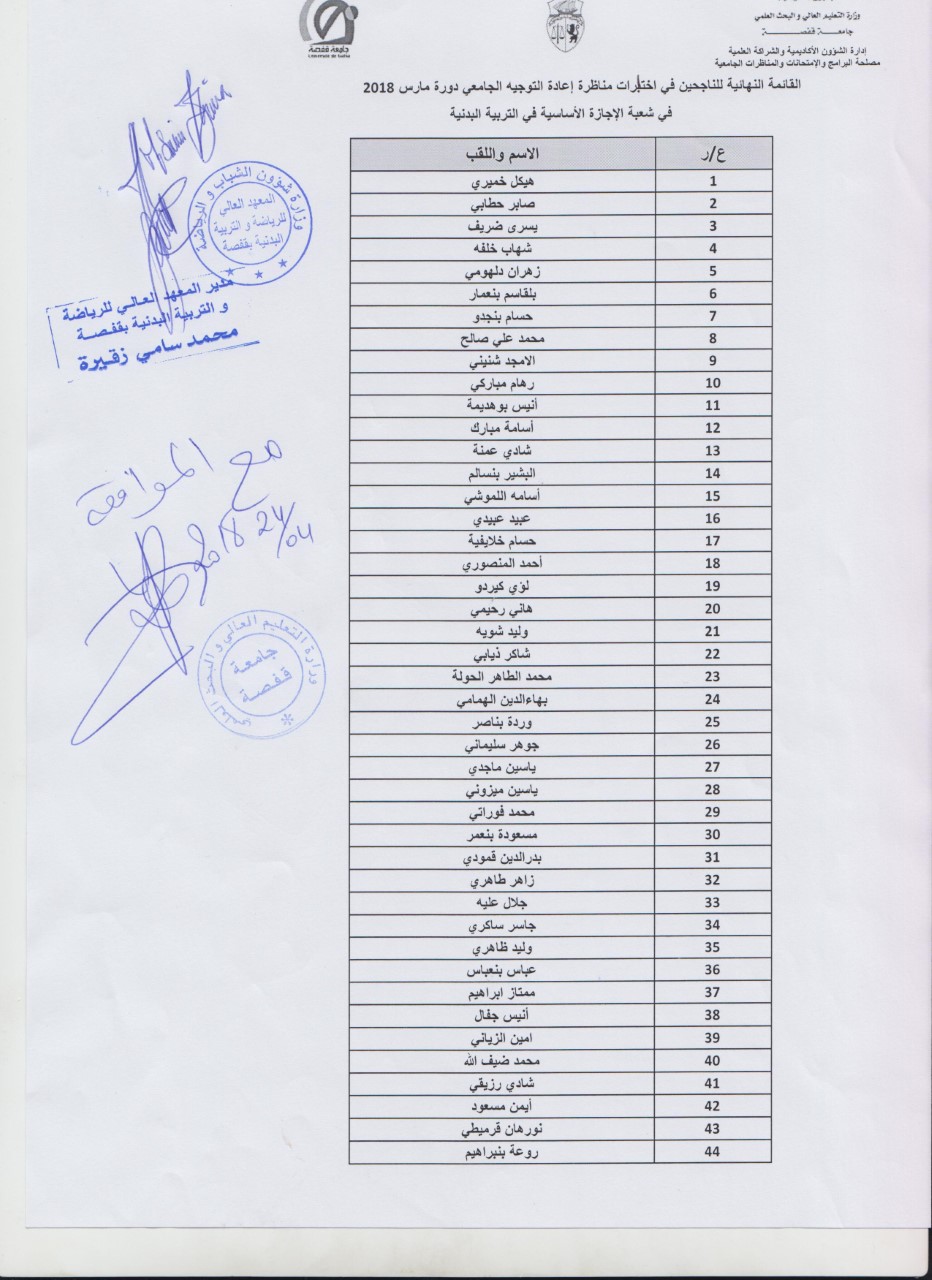 وزارة التعليم العالي والبحث العلمي
جامعـــة قفصـــة
إدارة الشؤون الأكاديمية والشراكة العلمية
مصلحة البرامج والإمتحانات والمناظرات الجامعية
جامعة قفصة
Université de Gafsa
القائمة النهائية للناجحين في اختبارات مناظرة إعادة التوجيه الجامعي دورة مارس 2018
في شعبة الإجازة الأساسية في التربية البدنية
ع/ر الاسم واللقب
1 هيكل خميري
2 صابر حطابي
3 يسرى ضريف
4 شهاب خلفه
5 زهران دلهومي
6 بلقاسم بنعمار
7 حسام بنجدو
8 محمد علي صالح
9 الامجد شنيني
10 رهام مباركي
11 أنيس بوهديمة
12 أسامة مبارك
13 شادي عمنة
14 البشير بنسالم
15 أسامه اللموشي
16 عبيد عبيدي
17 حسام خلايفية
18 أحمد المنصوري
19 لؤي كيردو
20 هاني رحيمي
21 وليد شويه
22 شاكر ذيابي
23 محمد الطاهر الحولة
24 بهاءالدين الهمامي
25 وردة بناصر
26 جوهر سليماني
27 ياسين ماجدي
28 ياسين ميزوني
29 محمد فوراتي
30 مسعودة بنعمر
31 بدرالدين قمودي
32 زاهر طاهري
33 جلال عليه
34 جاسر ساكري
35 وليد ظاهري
36 عباس بنعباس
37 ممتاز ابراهيم
38 أنيس جفال
39 امين الزياني
40 محمد ضيف الله
41 شادي رزيقي
42 أيمن مسعود
43 نورهان قرميطي
44 روعة بنبراهيم
وزارة شؤون الشباب و الرياضة
المعهد العالي
للرياضة و التربية
البدنية بقفصة
مدير المعهد العالي للرياضة
و التربية البدنية بقفصـة
محمد سامي زقيرة
مع الموافقة
24/04
وزارة التعليم العالي و البحث العلمي
جامعة
قفصة